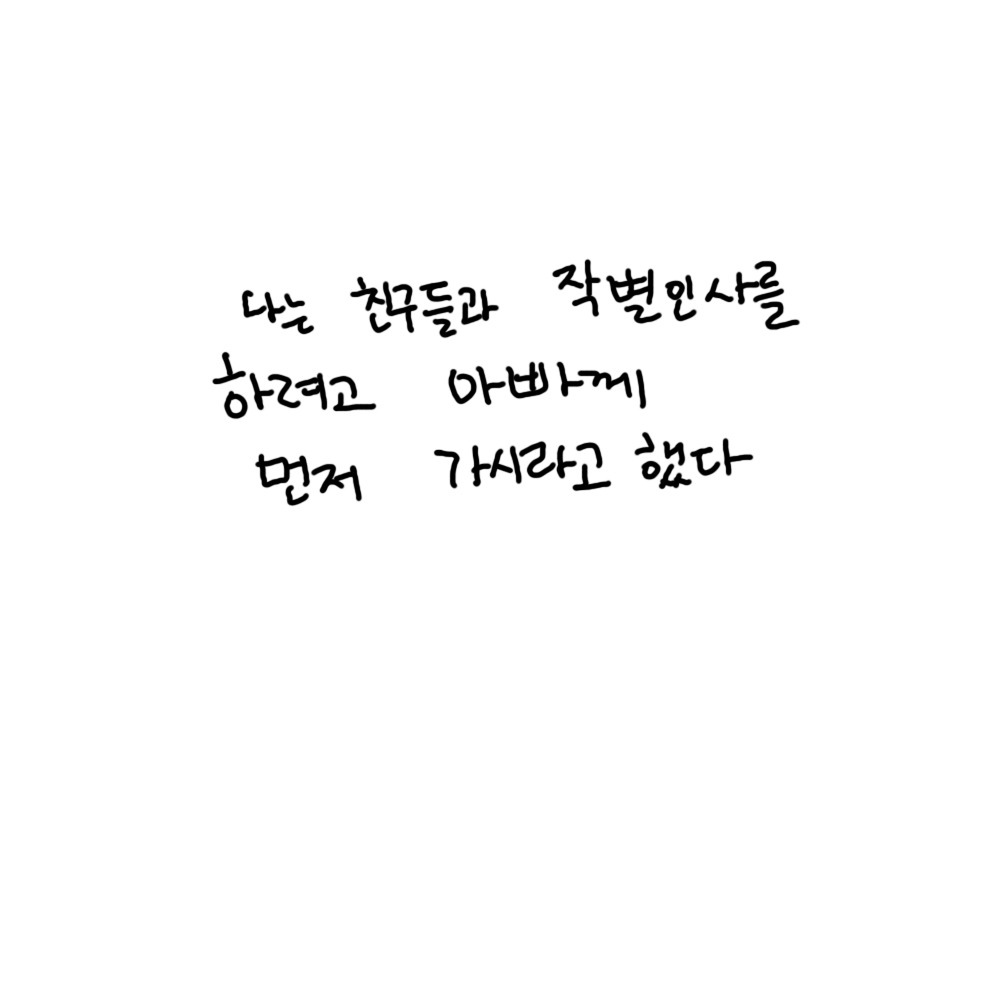 나는 친구들과 작별인사를
하려고 아빠께
먼저 가시라고 했다